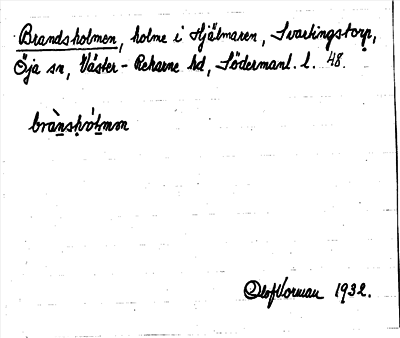 Brandsholmen, holme i Hjälmaren, Svartingstorp,
Öja sn, Väster-Rekarne hd, Södermanl. l. 48.
brànshólmən
Olof Vorman 1932.